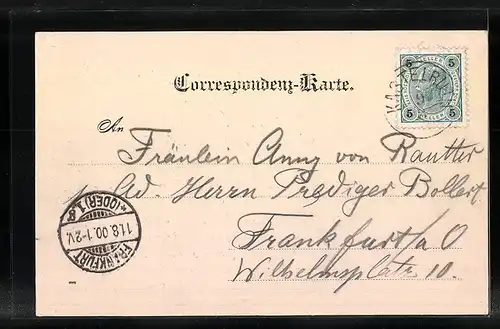 Correspondenz-Karte.
5 5
5 5
KASTELRUTH
An
Fräulein Anny von Rautter
p. Ad. Herrn Prediger Bollert
Frankfurt a O
Wilhelmsplatz 10.
FRANKFURT
11.8.00.1-2V.
* (ODER) 1.